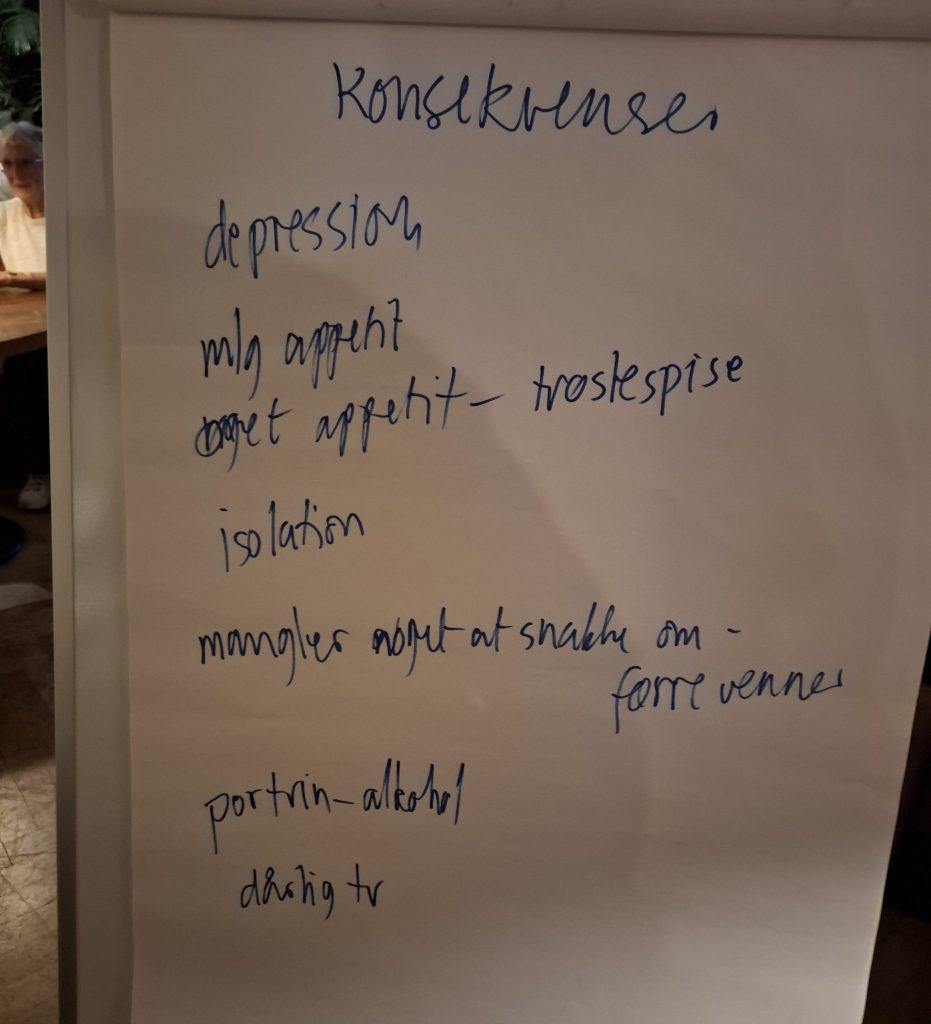 Konsekvenser
depression
mlg appetit
øget appetit - trøstespise
isolation
mangler noget at snakke om -
færre venner
portvin - alkohol
dårlig tv